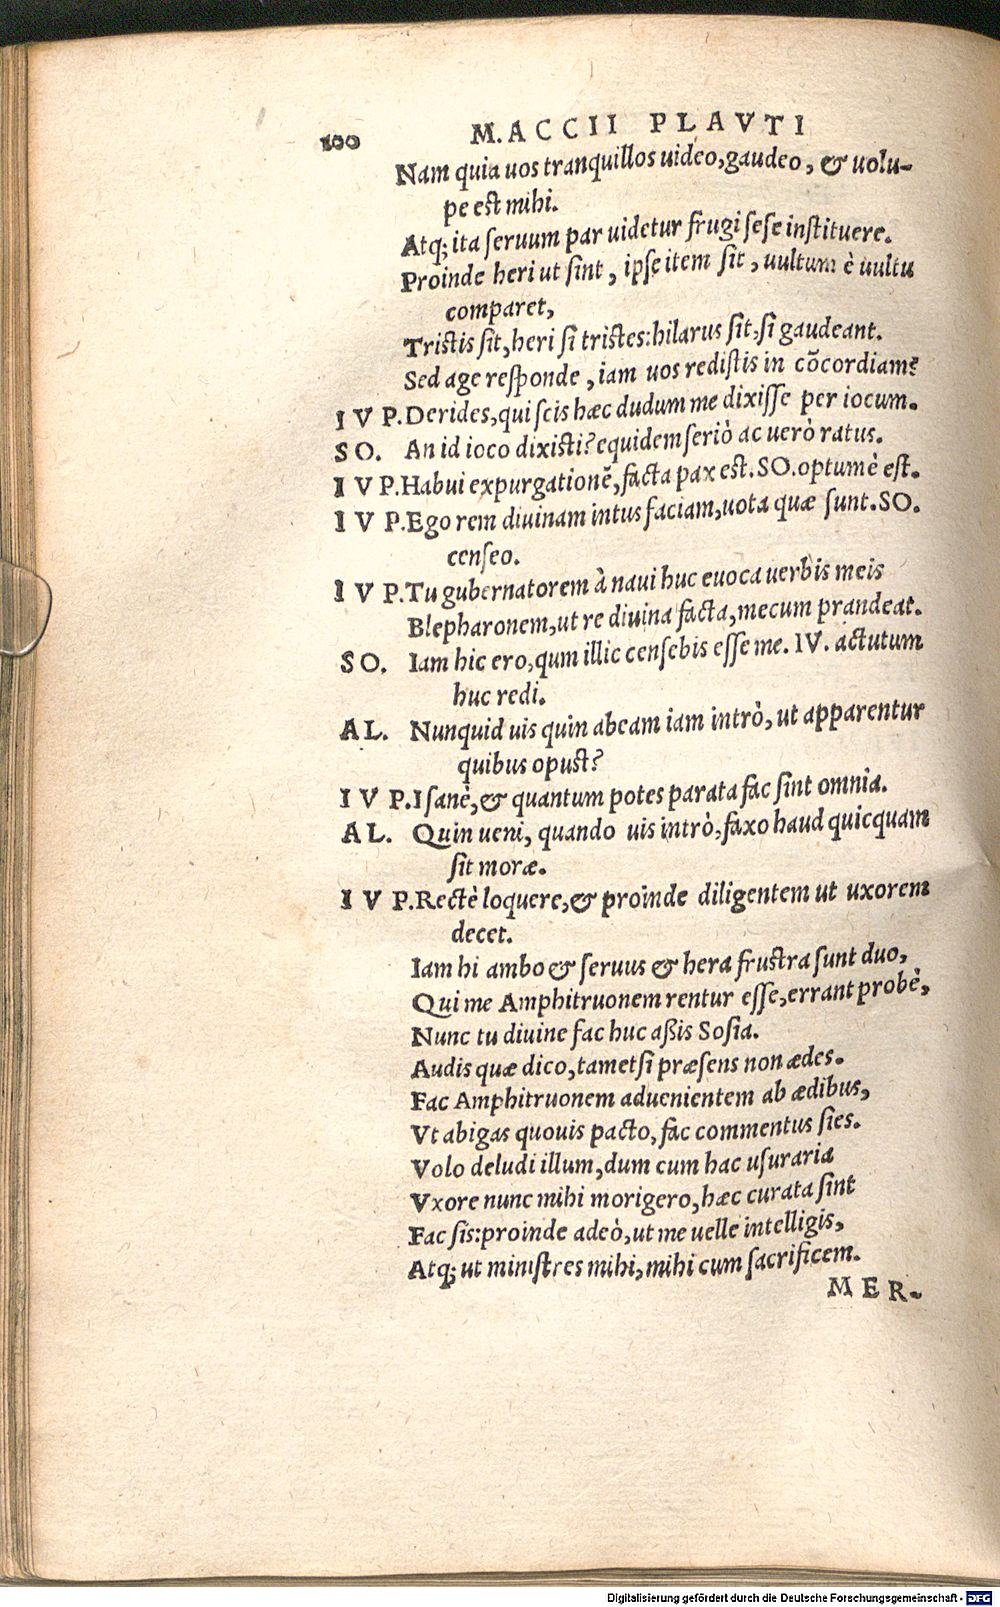 100 M. ACCII PLAVTI
Nam quia uos tranquillos uideo, gaudeo, & uolu-
pe est mihi.
Atq; ita seruum par uidetur frugi sese instituere.
Proinde heri ut sint, ipse item sit, uultum è uultu
comparet,
Tristis sit, heri si tristes: hilarus sit, si gaudeant.
Sed age responde, iam uos redistis in cōcordiam?
IVP. Derides, qui scis hæc dudum me dixisse per iocum.
SO. An id ioco dixisti? equidem seriò ac uerò ratus.
IVP. Habui expurgationē, facta pax est. SO. optumè est.
IVP. Ego rem diuinam intus faciam, uota quæ sunt. SO.
censeo.
IVP. Tu gubernatorem à naui huc euoca uerbis meis
Blepharonem, ut re diuina facta, mecum prandeat.
SO. Iam hic ero, qum illic censebis esse me. IV. actutum
huc redi.
AL. Nunquid uis quin abeam iam intrò, ut apparentur
quibus opust?
IVP. I sanè, & quantum potes parata fac sint omnia.
AL. Quin ueni, quando uis intrò, faxo haud quicquam
sit moræ.
IVP. Rectè loquere, & proinde diligentem ut uxorem
decet.
Iam hi ambo & seruus & hera frustra sunt duo,
Qui me Amphitruonem rentur esse, errant probè,
Nunc tu diuine fac huc aßis Sosia.
Audis quæ dico, tametsi præsens non ædes.
Fac Amphitruonem aduenientem ab ædibus,
Vt abigas quouis pacto, fac commentus sies.
Volo deludi illum, dum cum hac usuraria
Vxore nunc mihi morigero, hæc curata sint
Fac sis: proinde adeò, ut me uelle intelligis,
Atq; ut ministres mihi, mihi cum sacrificem.
MER-
Digitalisierung gefördert durch die Deutsche Forschungsgemeinschaft - DFG